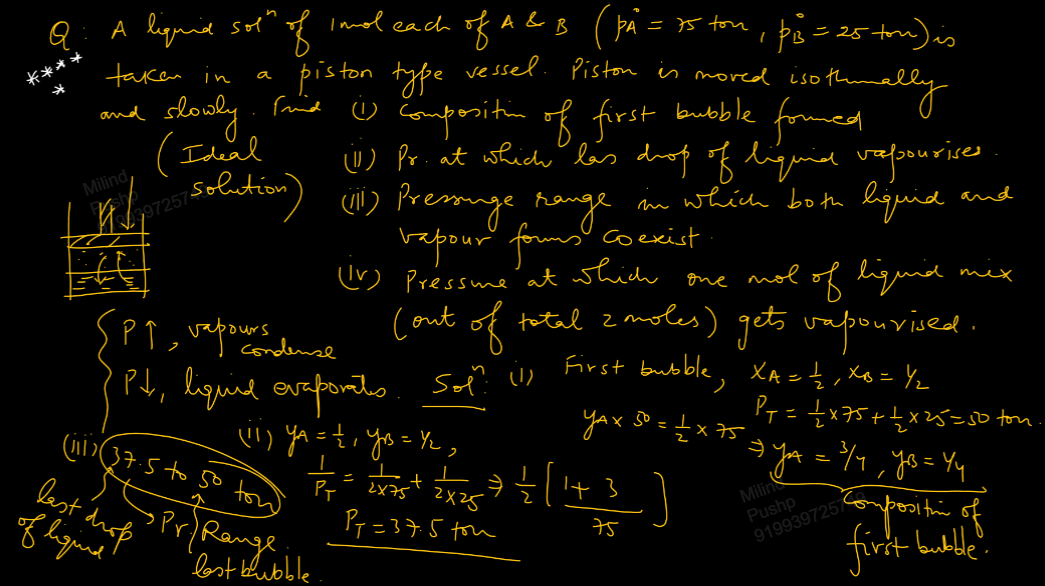 Q: A liquid solⁿ of 1 mol each of A & B (pA° = 75 torr, pB° = 25 torr) is
**** *
taken in a piston type vessel. Piston is moved isothermally
and slowly. Find (i) composition of first bubble formed
(Ideal solution)
(ii) Pr. at which las drop of liquid vapourises.
(iii) Pressure range in which both liquid and
vapour forms coexist.
(iv) Pressure at which one mol of liquid mix
(out of total 2 moles) gets vapourised.
P↑, vapours condense
P↓, liquid evaporates.
Solⁿ: (i) First bubble, xA = 1/2, xB = 1/2
PT = 1/2 × 75 + 1/2 × 25 = 50 torr.
yA × 50 = 1/2 × 75
⇒ yA = 3/4, yB = 1/4
Composition of
first bubble.
(ii) yA = 1/2, yB = 1/2,
1/PT = 1/2×75 + 1/2×25 ⇒ 1/2 [1 + 3 / 75]
PT = 37.5 torr
(iii) 37.5 to 50 torr
last drop of liquid
Pr. Range
last bubble.
Milind
Pushp
Milind
Pushp